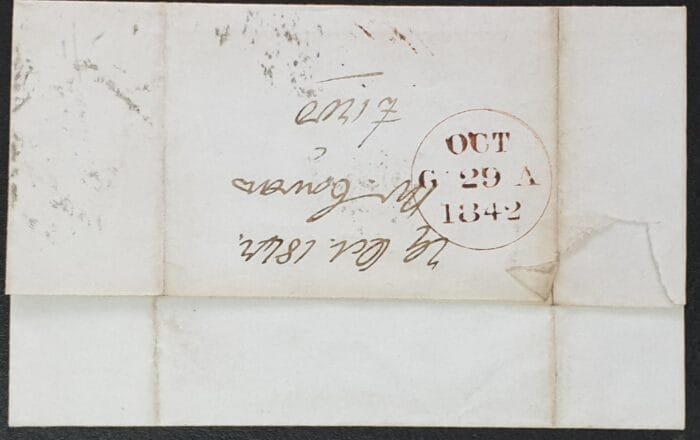 OCT
G 29 A
1842
29 Oct. 1842.
Mr Cowan